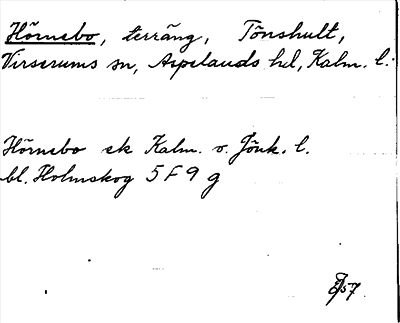 Hörnebo, terräng, Tönshult,
Virserums sn, Aspelands hd, Kalm. l.
Hörnebo ek Kalm. v. Jönk. l.
bl. Holmskog 5 F 9 g
57